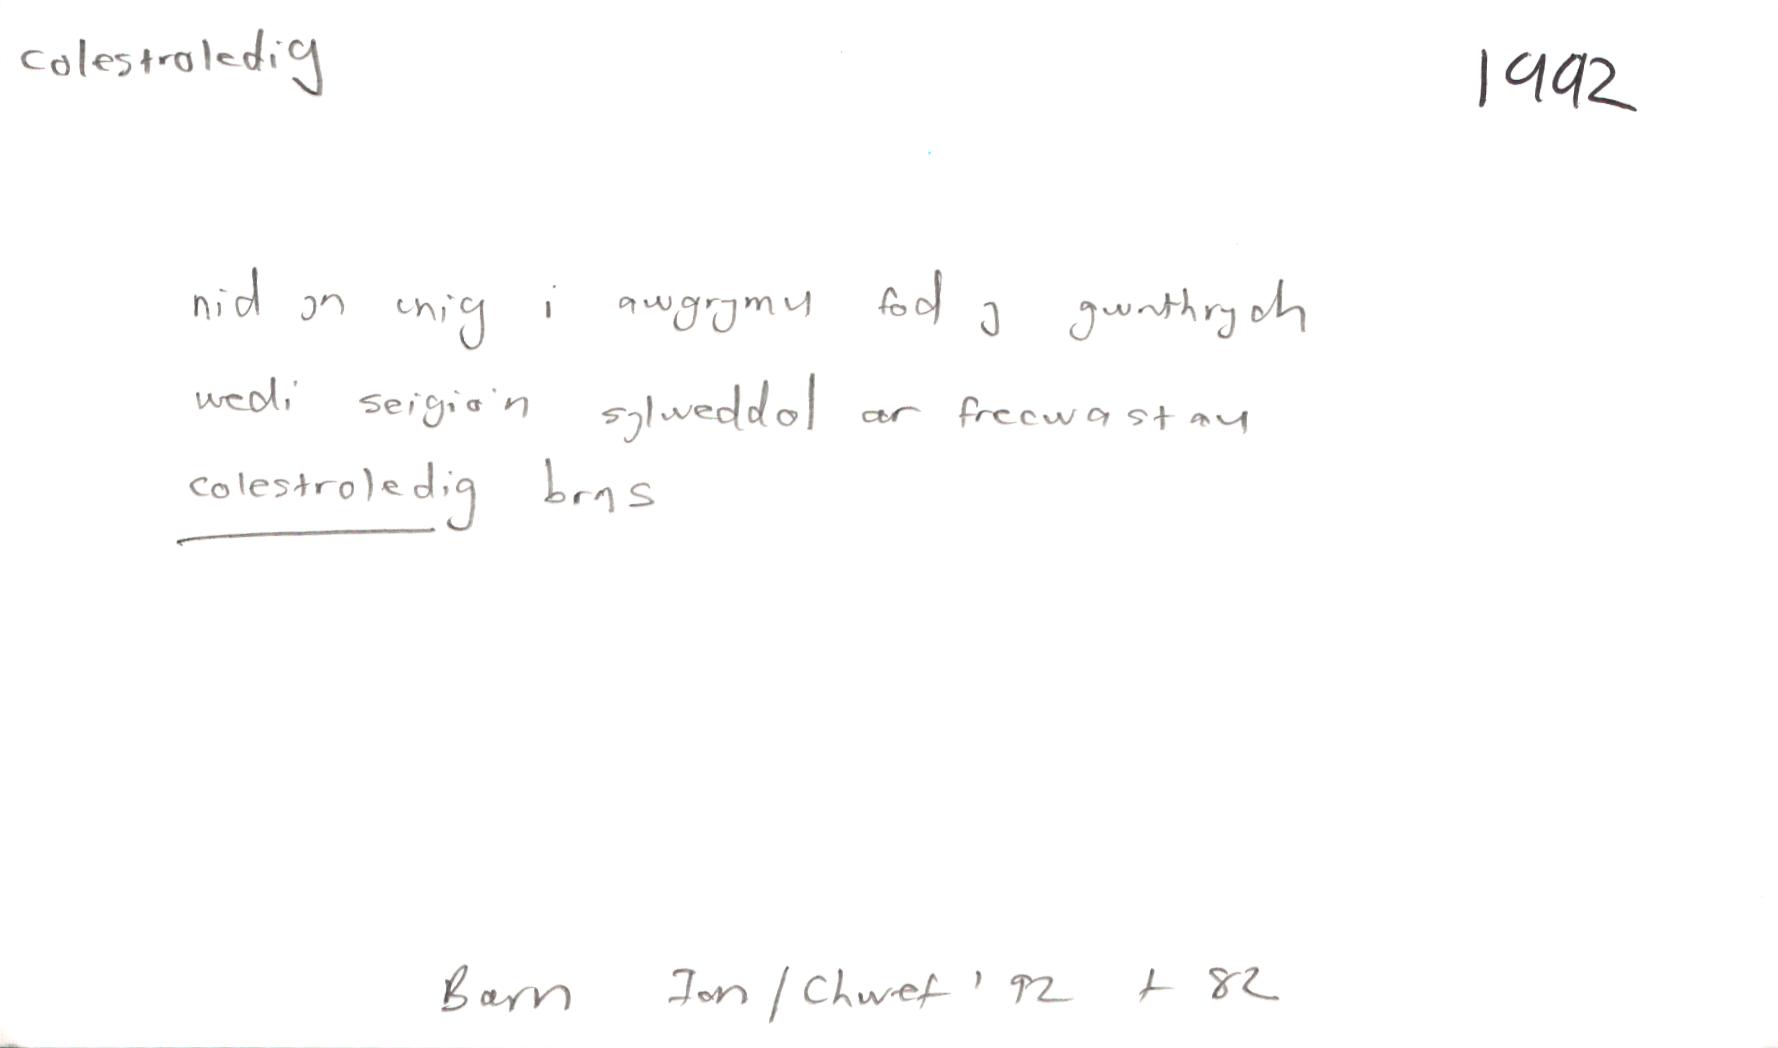 colestroledig 1992
nid yn unig i awgrymu fod y gwrthrych
wedi seigio'n sylweddol ar frecwastau
colestroledig bras
Barn Ion/Chwef '92 t 82